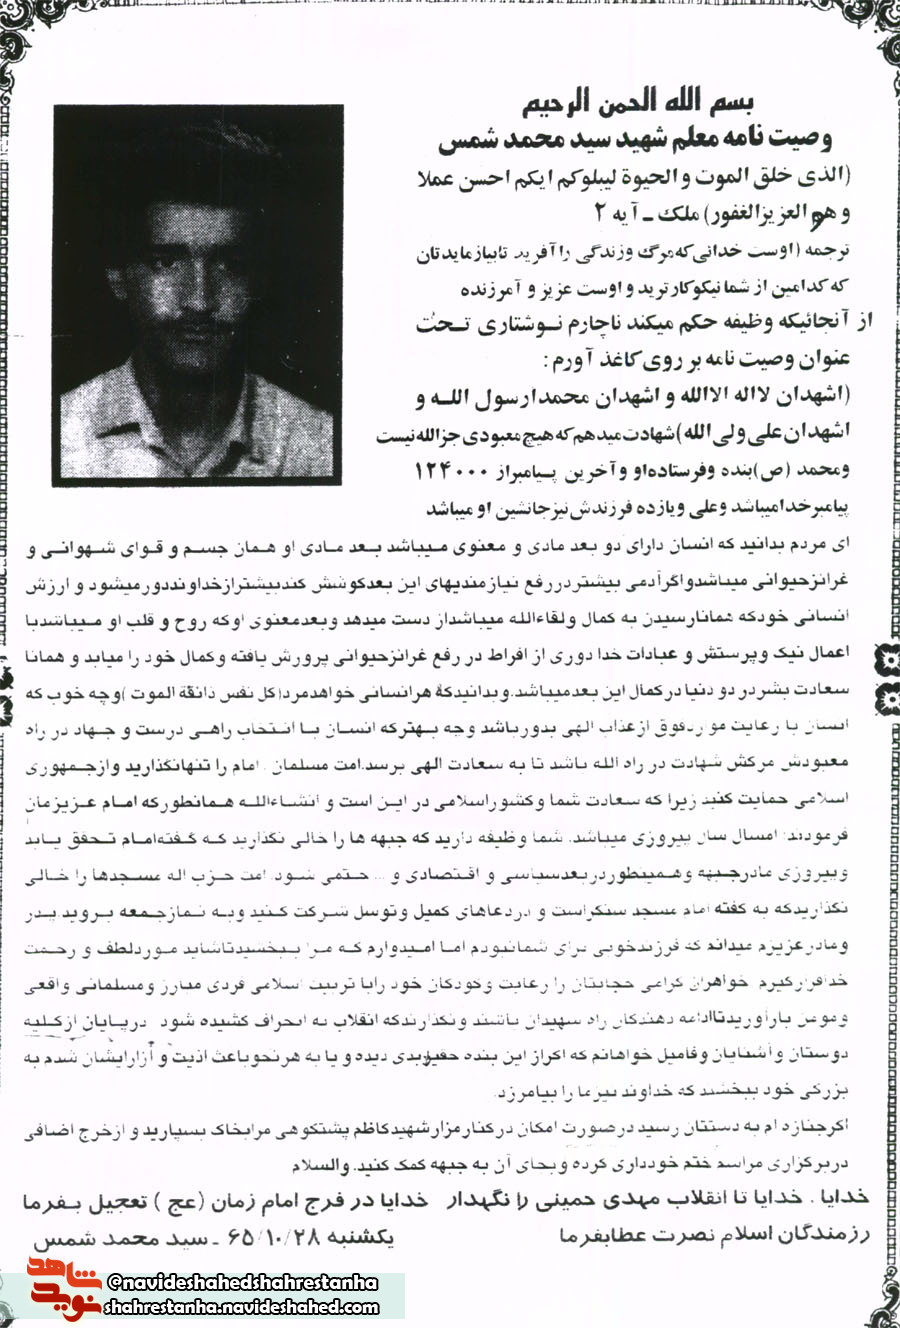 بسم الله الحمن الرحیم
وصیت نامه معلم شهید سید محمد شمس
(الذی خلق الموت و الحیوة لیبلوکم ایکم احسن عملا
و هو العزیز الغفور) ملک ـ آیه ۲
ترجمه (اوست خدائی که مرگ و زندگی را آفرید تا بیازمایدتان
که کدامین از شما نیکوکارترید و اوست عزیز و آمرزنده
از آنجائیکه وظیفه حکم میکند ناچارم نوشتاری تحت
عنوان وصیت نامه بر روی کاغذ آورم :
(اشهدان لااله الاالله و اشهدان محمدارسول الله و
اشهدان علی ولی الله) شهادت میدهم که هیچ معبودی جز الله نیست
و محمد (ص) بنده و فرستاده او و آخرین پیامبر از ۱۲۴۰۰۰
پیامبر خدا میباشد و علی و یازده فرزندش نیز جانشین او میباشد
ای مردم بدانید که انسان دارای دو بعد مادی و معنوی میباشد بعد مادی او همان جسم و قوای شهوانی و
غرائز حیوانی میباشد و اگر آدمی بیشتر در رفع نیازمندیهای این بعد کوشش کند بیشتر از خداوند دور میشود و ارزش
انسانی خود که همانا رسیدن به کمال و لقاءالله میباشد از دست میدهد و بعد معنوی او که روح و قلب او میباشد با
اعمال نیک و پرستش و عبادات خدا دوری از افراط در رفع غرائز حیوانی پرورش یافته و کمال خود را میابد و همانا
سعادت بشر در دو دنیا در کمال این بعد میباشد. و بدانید که هر انسانی خواهد مرد (کل نفس ذائقة الموت) و چه خوب که
انسان با رعایت موارد فوق از عذاب الهی بدور باشد و چه بهتر که انسان با انتخاب راهی درست و جهاد در راه
معبودش مرگش شهادت در راه الله باشد تا به سعادت الهی برسد. امت مسلمان. امام را تنها نگذارید و از جمهوری
اسلامی حمایت کنید زیرا که سعادت شما و کشور اسلامی در این است و انشاءالله همانطور که امام عزیزمان
فرمودند: امسال سال پیروزی میباشد. شما وظیفه دارید که جبهه ها را خالی نگذارید که گفته امام تحقق یابد
و پیروزی ما در جبهه و همینطور در بعد سیاسی و اقتصادی و ... حتمی شود. امت حزب اله مسجدها را خالی
نگذارید که به گفته امام مسجد سنگر است و در دعاهای کمیل و توسل شرکت کنید و به نماز جمعه بروید. پدر
و مادر عزیزم میدانم که فرزند خوبی برای شما نبودم اما امیدوارم که مرا ببخشید تا شاید مورد لطف و رحمت
خدا قرار گیرم خواهران گرامی حجابتان را رعایت و کودکان خود را با تربیت اسلامی فردی مبارز و مسلمانی واقعی
و مومن بار آورید تا ادامه دهندگان راه شهیدان باشند و نگذارند که انقلاب به انحراف کشیده شود در پایان از کلیه
دوستان و آشنایان و فامیل خواهانم که اگر از این بنده حقیر بدی دیده و یا به هر نحو باعث اذیت و آزار ایشان شدم به
بزرگی خود ببخشند که خداوند نیز ما را بیامرزد.
اگر جنازه ام به دستتان رسید در صورت امکان در کنار مزار شهید کاظم پشتکوهی مرا بخاک بسپارید و از خرج اضافی
در برگزاری مراسم ختم خودداری کرده و بجای آن به جبهه کمک کنید. والسلام
خدایا . خدایا تا انقلاب مهدی خمینی را نگهدار خدایا در فرج امام زمان (عج) تعجیل بفرما
رزمندگان اسلام نصرت عطا بفرما یکشنبه ۶۵/۱۰/۲۸ ـ سید محمد شمس
نوید شاهد
@navideshahedshahrestanha
shahrestanha.navideshahed.com